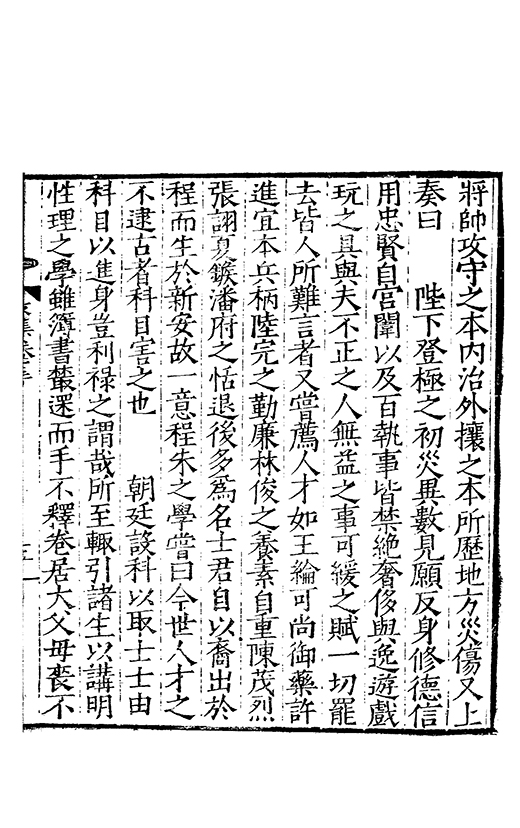 將帥攻守之本內治外攘之本所歷地方災傷又上
奏曰　陛下登極之初災異數見願反身修德信
用忠賢自宮闈以及百執事皆禁絶奢侈與逸遊戲
玩之具與夫不正之人無益之事可緩之賦一切罷
去皆人所難言者又嘗薦人才如王綸可尚御藥許
進宜本兵柄陸完之勤廉林俊之養素自重陳茂烈
張詡夏鍭潘府之恬退後多爲名士君自以裔出於
程而生於新安故一意程朱之學嘗曰今世人才之
不逮古者科目害之也　朝廷設科以取士士由
科目以進身豈利祿之謂哉所至輙引諸生以講明
性理之學雖簿書叢遝而手不釋卷居大父母喪不